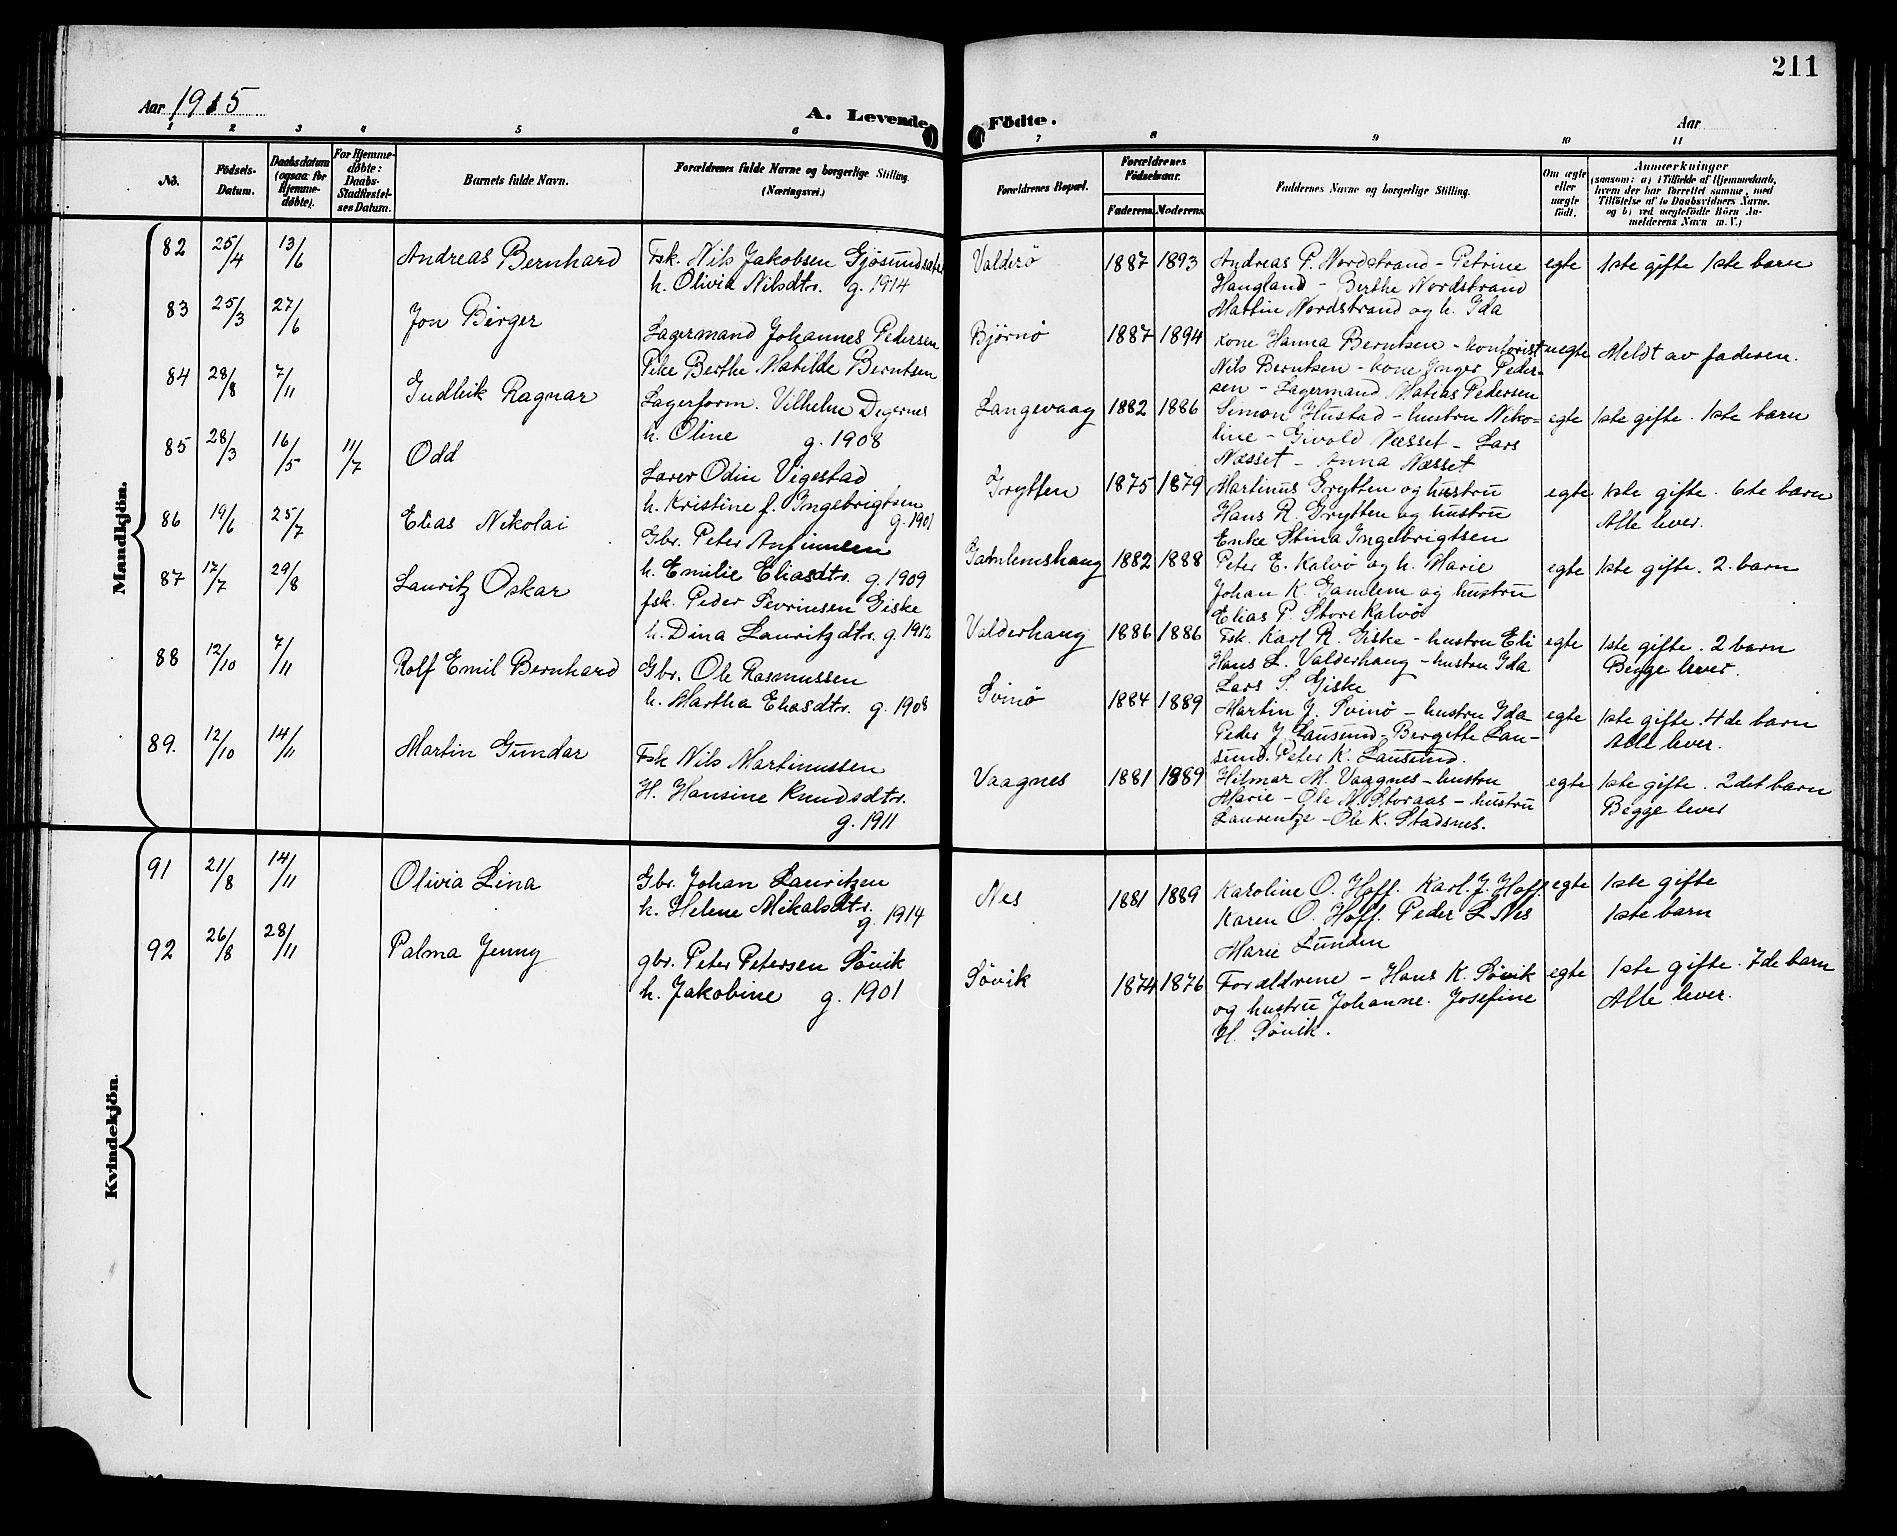 211
Aar 1915
A. Levende
Födte.
Aar
1 2 3 4 5 6 7 8 9 10 11
No.
Födsels-Datum.
Daabsdatum (ogsaa for Hjemme-døbte).
For Hjemme-døbte: Daabs-Stadfæstel-ses Datum.
Barnets fulde Navn.
Forældrenes fulde Navne og borgerlige Stilling (Næringsvei.)
Forældrenes Bopæl.
Forældrenes Födselsaar.
Faderens. Moderens.
Faddernes Navne og borgerlige Stilling.
Om ægte eller uægte födt.
Anmærkninger
(saasom: a) i Tilfælde af Hjemmedaab,
hvem der har forrettet samme, med
Tilföielse af to Daabsvidners Navne.
og b) ved uægtefödte Börn An-
melderens Navn m. V.)
Mandkjön.
82 25/4 13/6 Andreas Bernhard
Fsk. Nils Jakobsen
h. Olivia Nilsdtr. g. 1914
Valderö 1887 1893
Andreas P. Nordstrand - Petrine
Haugland - Berthe Nordstrand
Martin Nordstrand og h. Ida
egte 1ste gifte 1ste barn
83 25/3 27/6 Jon Birger
Lagermand Johannes Pedersen
Pike Berthe Matilde Berntsen
Bjørnö 1887 1894
Kone Hanna Berntsen - kontorist
Nils Berntsen - kone Inger Peder-
sen - Lagermand Matias Pedersen
uegte Meldt av faderen.
84 28/8 7/11 Gudleik Ragnar
Lagerform. Vilhelm Degernes
h. Oline g. 1908
Langevaag 1882 1886
Simon Hustad - hustru Niko-
line - Givold Næsset - Lars
Næsset - Anna Næsset
egte 1ste gifte. 1ste barn
85 28/3 16/5 11/7 Odd
Lærer Odin Vigestad
h. Kristine f. Ingebrigtsen
g. 1901
Grytten 1875 1879
Martinus Grytten og hustru
Hans R. Grytten og hustru
Enke Stina Ingebrigtsen
egte 1ste gifte. 6te barn
Alle lever.
86 19/6 25/7 Elias Nikolai
Gbr. Peter Anfinnsen
h. Emilie Eliasdtr. g. 1909
Gamlemshaug 1882 1888
Peter E. Kalvö og h. Marie
Johan K. Gamlem og hustru
Elias P. Store Kalvö
egte 1ste gifte. 2. barn
87 17/7 29/8 Lauritz Oskar
fsk. Peder Sevrinsen Giske
h. Dina Lauritzdtr. g. 1912
Valderhaug 1886 1886
Fsk. Karl R. Giske - hustru Eli
Hans L. Valderhaug - hustru Ida
Lars S. Giske
egte 1ste gifte. 2 barn
Begge lever.
88 12/10 7/11 Rolf Emil Bernhard
Gbr. Ole Rasmussen
h. Martha Eliasdtr. g. 1908
Svinö 1884 1889
Martin J. Svinö - hustru Ida
Peder J. Lausund - Bergitte Lau-
sund. Peter K. Lausund.
egte 1ste gifte. 4de barn
Alle lever.
89. 12/10 14/11 Martin Gundar
Fsk Nils Martinussen
H. Hansine Knudsdtr.
g. 1911
Vaagnes 1881 1889
Hilmar M. Vaagnes - hustru
Marie - Ole N. Storaas - hustru
Laurentze - Ole K. Stadsnes.
egte 1ste gifte. 2det barn
Begge lever
Kvindekjön.
91 21/8 14/11 Olivia Lina
Gbr. Johan Lauritzen
h. Helene Mikalsdtr.
g. 1914
Nes 1881 1889
Karoline O. Hoff. Karl. J. Hoff
Karen O. Hoff. Peder L. Nes
Marie Lunden
egte 1ste gifte
1ste barn
92 26/8 28/11 Palma Jenny
gbr. Peter Petersen Sövik
h. Jakobine g. 1901
Sövik 1874 1876
Forældrene - Hans K. Sövik
og hustru Johanne. Josefine
H. Sövik.
egte 1ste gifte. 7de barn
Alle lever.